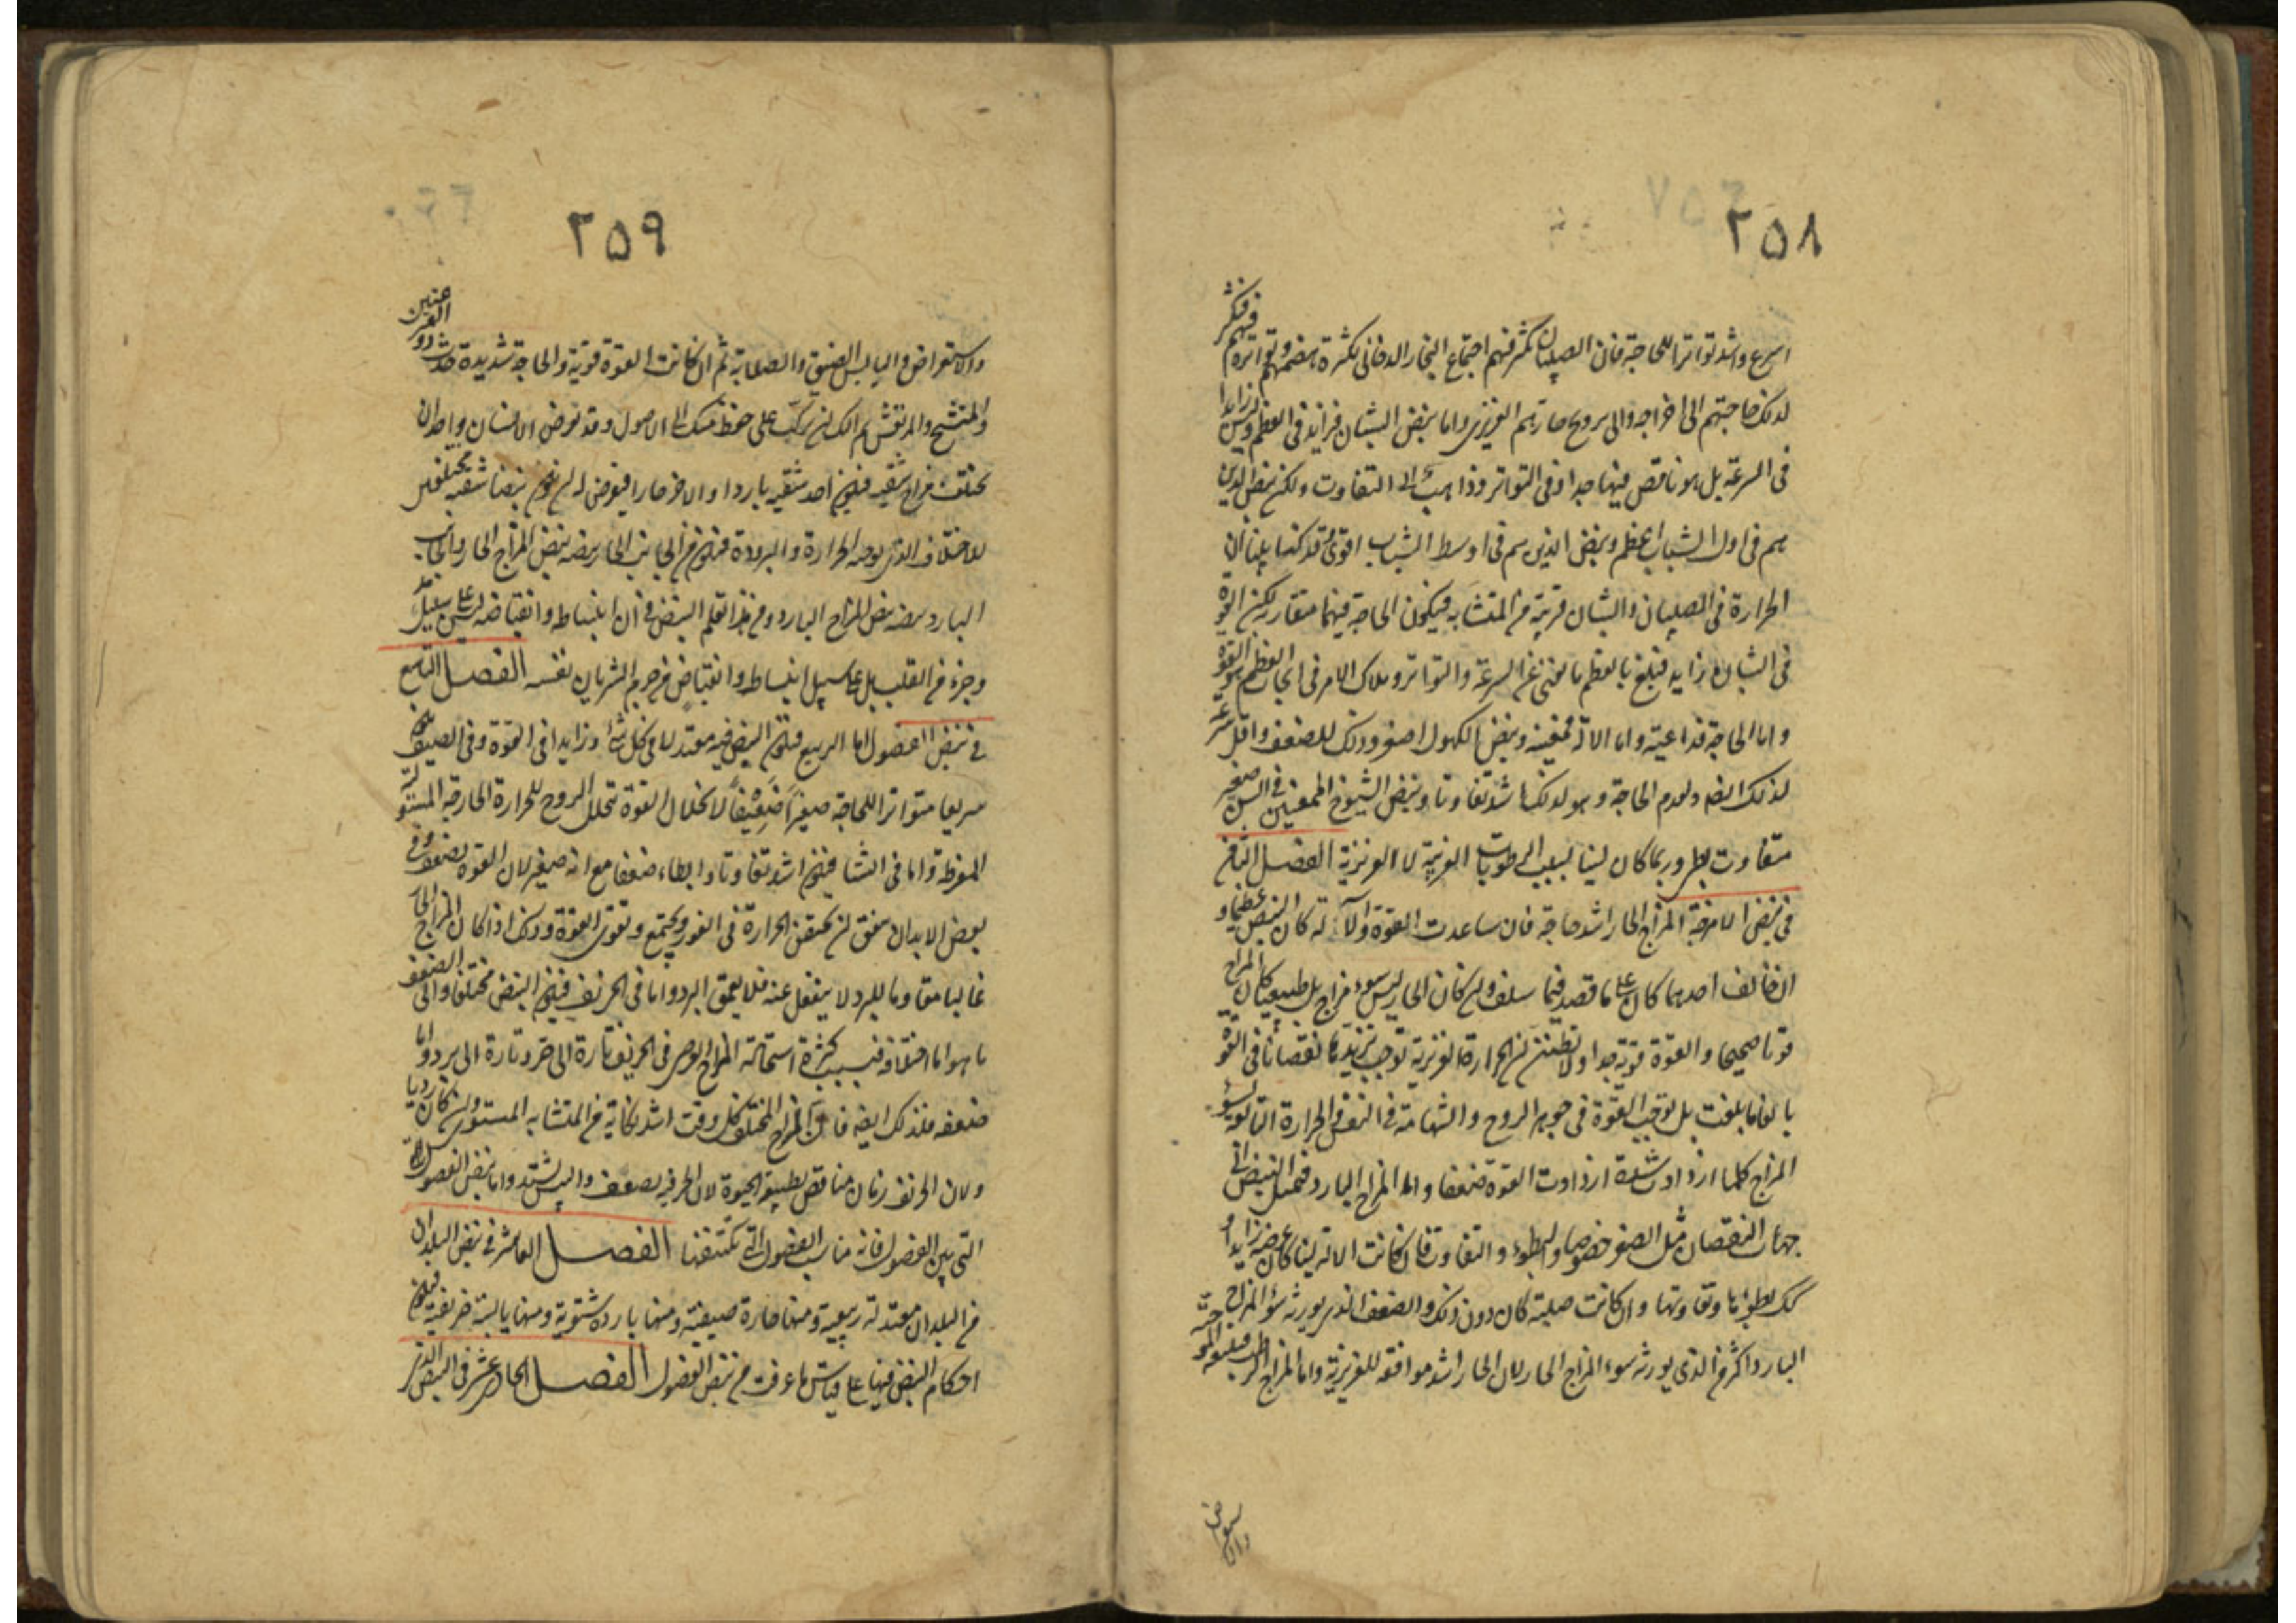 ٢٥٨
اسرع واشد تواترا للحاجة فان الصبيان تكثر فيهم اجتماع البخار الدخانى لكثرة هضمهم وتواتره فيهم فتكثر
لذلك حاجتهم الى اخراجه والى ترويح حارهم الغريزى واما نبض الشبان فزايد فى العظم وليس زايدا
فى السرعة بل هو ناقص فيها جدا وفى التواتر وذاهب الى التفاوت ولكن نبض الذين
هم فى اول الشباب اعظم ونبض الذين هم فى اوسط الشباب اقوى وقد كنا بينا ان
الحرارة فى الصبيان والشبان قريبة من المتشابه فيكون الحاجة فيهما متقاربة لكن القوة
فى الشبان زايدة فتبلغ بالعظم ما يغنى عن السرعة والتواتر وملاك الامر فى ايجاب العظم هو القوة
واما الحاجة فداعية واما الالة فمعينة ونبض الكهول اصغر وذلك للضعف واقل سرعة
لذلك ايضا ولعدم الحاجة وهو لذلك اشد تفاوتا ونبض الشيوخ الممعنين فى السن صغير
متفاوت بطى وربما كان لينا لسبب الرطوبات الغريبة لا الغريزية الفصل الثامن
فى نبض الامزجة المزاج الحار اشد حاجة فان ساعدت القوة والآلة كان النبض عظيما و
ان خالف احدهما كان على ما فصل فيما سلف وان كان الحار ليس سوء مزاج بل طبيعيا كان المزاج
قويا صحيحا والقوة قوية جدا ولا تظنن ان الحرارة الغريزية توجب تزيدها نقصانا فى القوة
بالغة ما بلغت بل توجب القوة فى جوهر الروح والشهامة فى النفس والحرارة التابعة لسوء
المزاج كلما ازدادت شدة ازدادت القوة ضعفا واما المزاج البارد فيميل النبض الى
جهات النقصان مثل الصغر خصوصا والبطوء والتفاوت فان كانت الالة لينة كان عرضه زايدا و
كذلك بطؤها وتفاوتها وان كانت صلبة كان دون ذلك والضعف الذى يورثه سوء المزاج
البارد اكثر من الذى يورثه سوء المزاج الحار لان الحار اشد موافقة للغريزية واما المزاج الرطب فيتبعه الموجية
والاستعراض
٢٥٩
والاستعراض واليابس الضيق والصلابة ثم ان كانت القوة قوية والحاجة شديدة حدث ذو القرعتين
والمتشنج والمرتعش ثم اليك ان تركب على حفظ منك الى الاصول وقد يعرض لانسان واحد ان
يختلف مزاج شقيه فيكون احد شقيه باردا والاخر حارا فيعرض له ان يكون نبضا شقيه مختلفين
للاختلاف الذى يوجبه الحرارة والبرودة فيكون من الجانب الحار نبضه نبض المزاج الحار والجانب
البارد نبضه نبض المزاج البارد ومن هذا تعلم النبض فى ان انبساطه وانقباضه ليس على سبيل مد
وجزر من القلب بل على سبيل انبساط وانقباض من جرم الشريان نفسه الفصل التاسع
فى نبض الفصول اما الربيع فيكون النبض فيه معتدلا فى كل شئ وزايدا فى القوة وفى الصيف يكون
سريعا متواترا للحاجة صغيرا ضعيفا لانحلال القوة بتحلل الروح للحرارة الخارجة المستولية
المفرطة واما فى الشتا فيكون اشد تفاوتا وابطاء وضعفا مع انه صغير لان القوة تضعف وفى
بعض الابدان يتفق ان يحتقن الحرارة فى الغور ويجتمع وتقوى القوة وذلك اذا كان المزاج الحار
غالبا مقاوما للبرد لا ينفعل عنه فلا يعمق البرد واما فى الخريف فيكون النبض مختلفا والى الضعف
ما هو اما اختلافه فبسبب كثرة استحالة المزاج العرضى فى الخريف تارة الى حر وتارة الى برد واما
ضعفه فلذلك ايضا فان المزاج المختلف فى كل وقت اشد نكاية من المتشابه المستوى وان كان رديا
ولان الخريف زمان مناقض لطبيعة الحيوة لان الحر فيه يضعف واليبس يشتد واما نبض الفصول
التى بين الفصول فانه مناسب الفصول التى تكتنفها الفصل العاشر فى نبض البلدان
من البلدان معتدلة ربيعية ومنها حارة صيفية ومنها باردة شتوية ومنها يابسة خريفية فيكون
احكام النبض فيها على قياس ما عرفت من نبض الفصول الفصل الحادى عشر فى النبض الذى